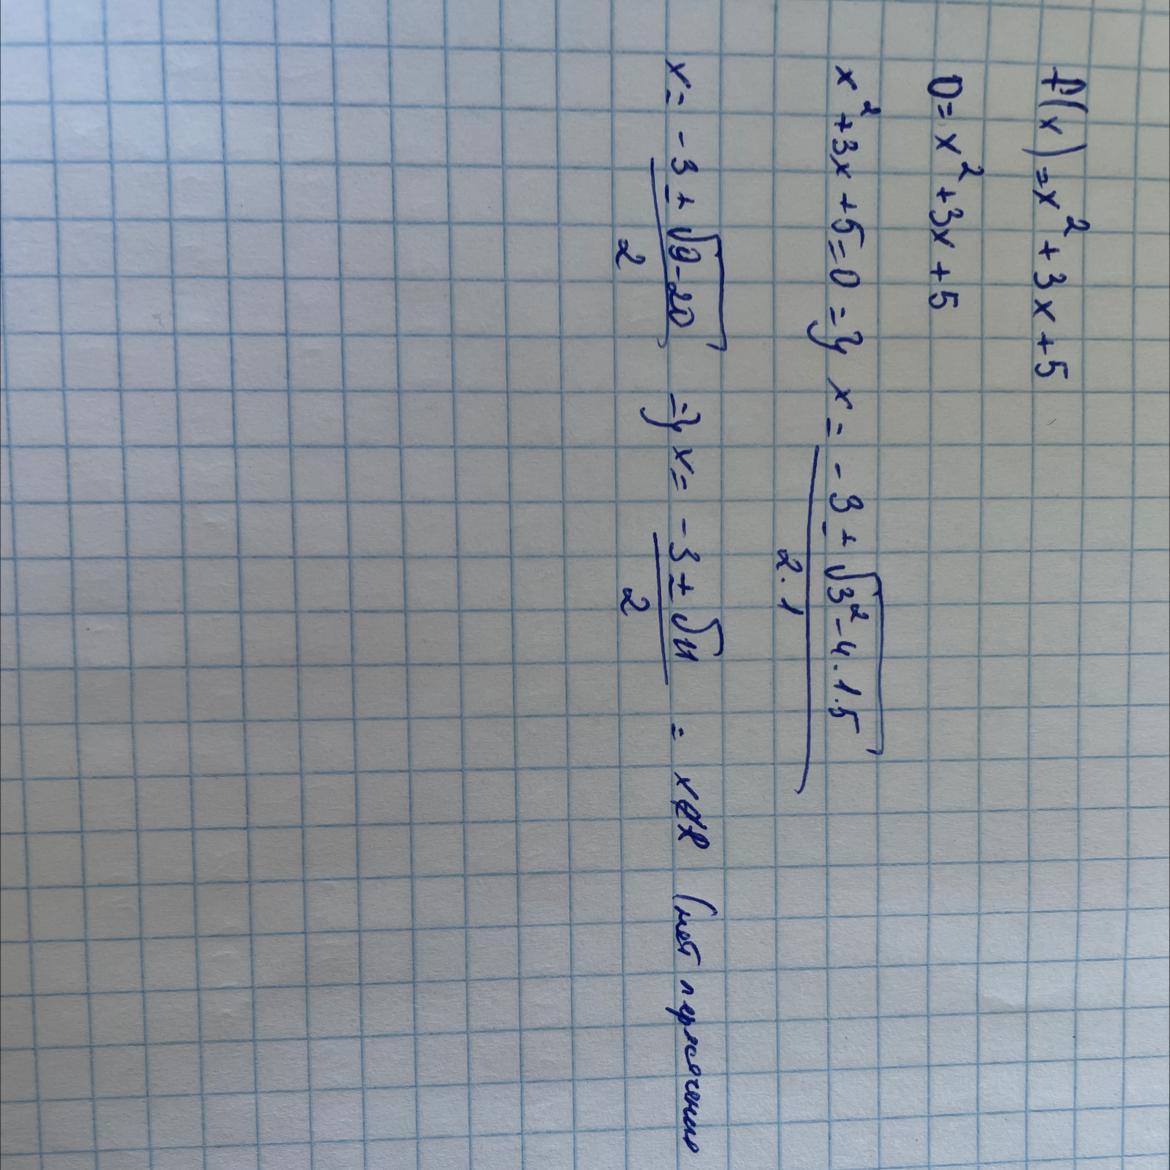 f(x)=x²+3x+5
0=x²+3x+5
x²+3x+5=0 => x = (-3±√(3²-4·1·5))/(2·1)
x = (-3±√(9-20))/2 => x = (-3±√11)/2 = x∉R (нет пересечения